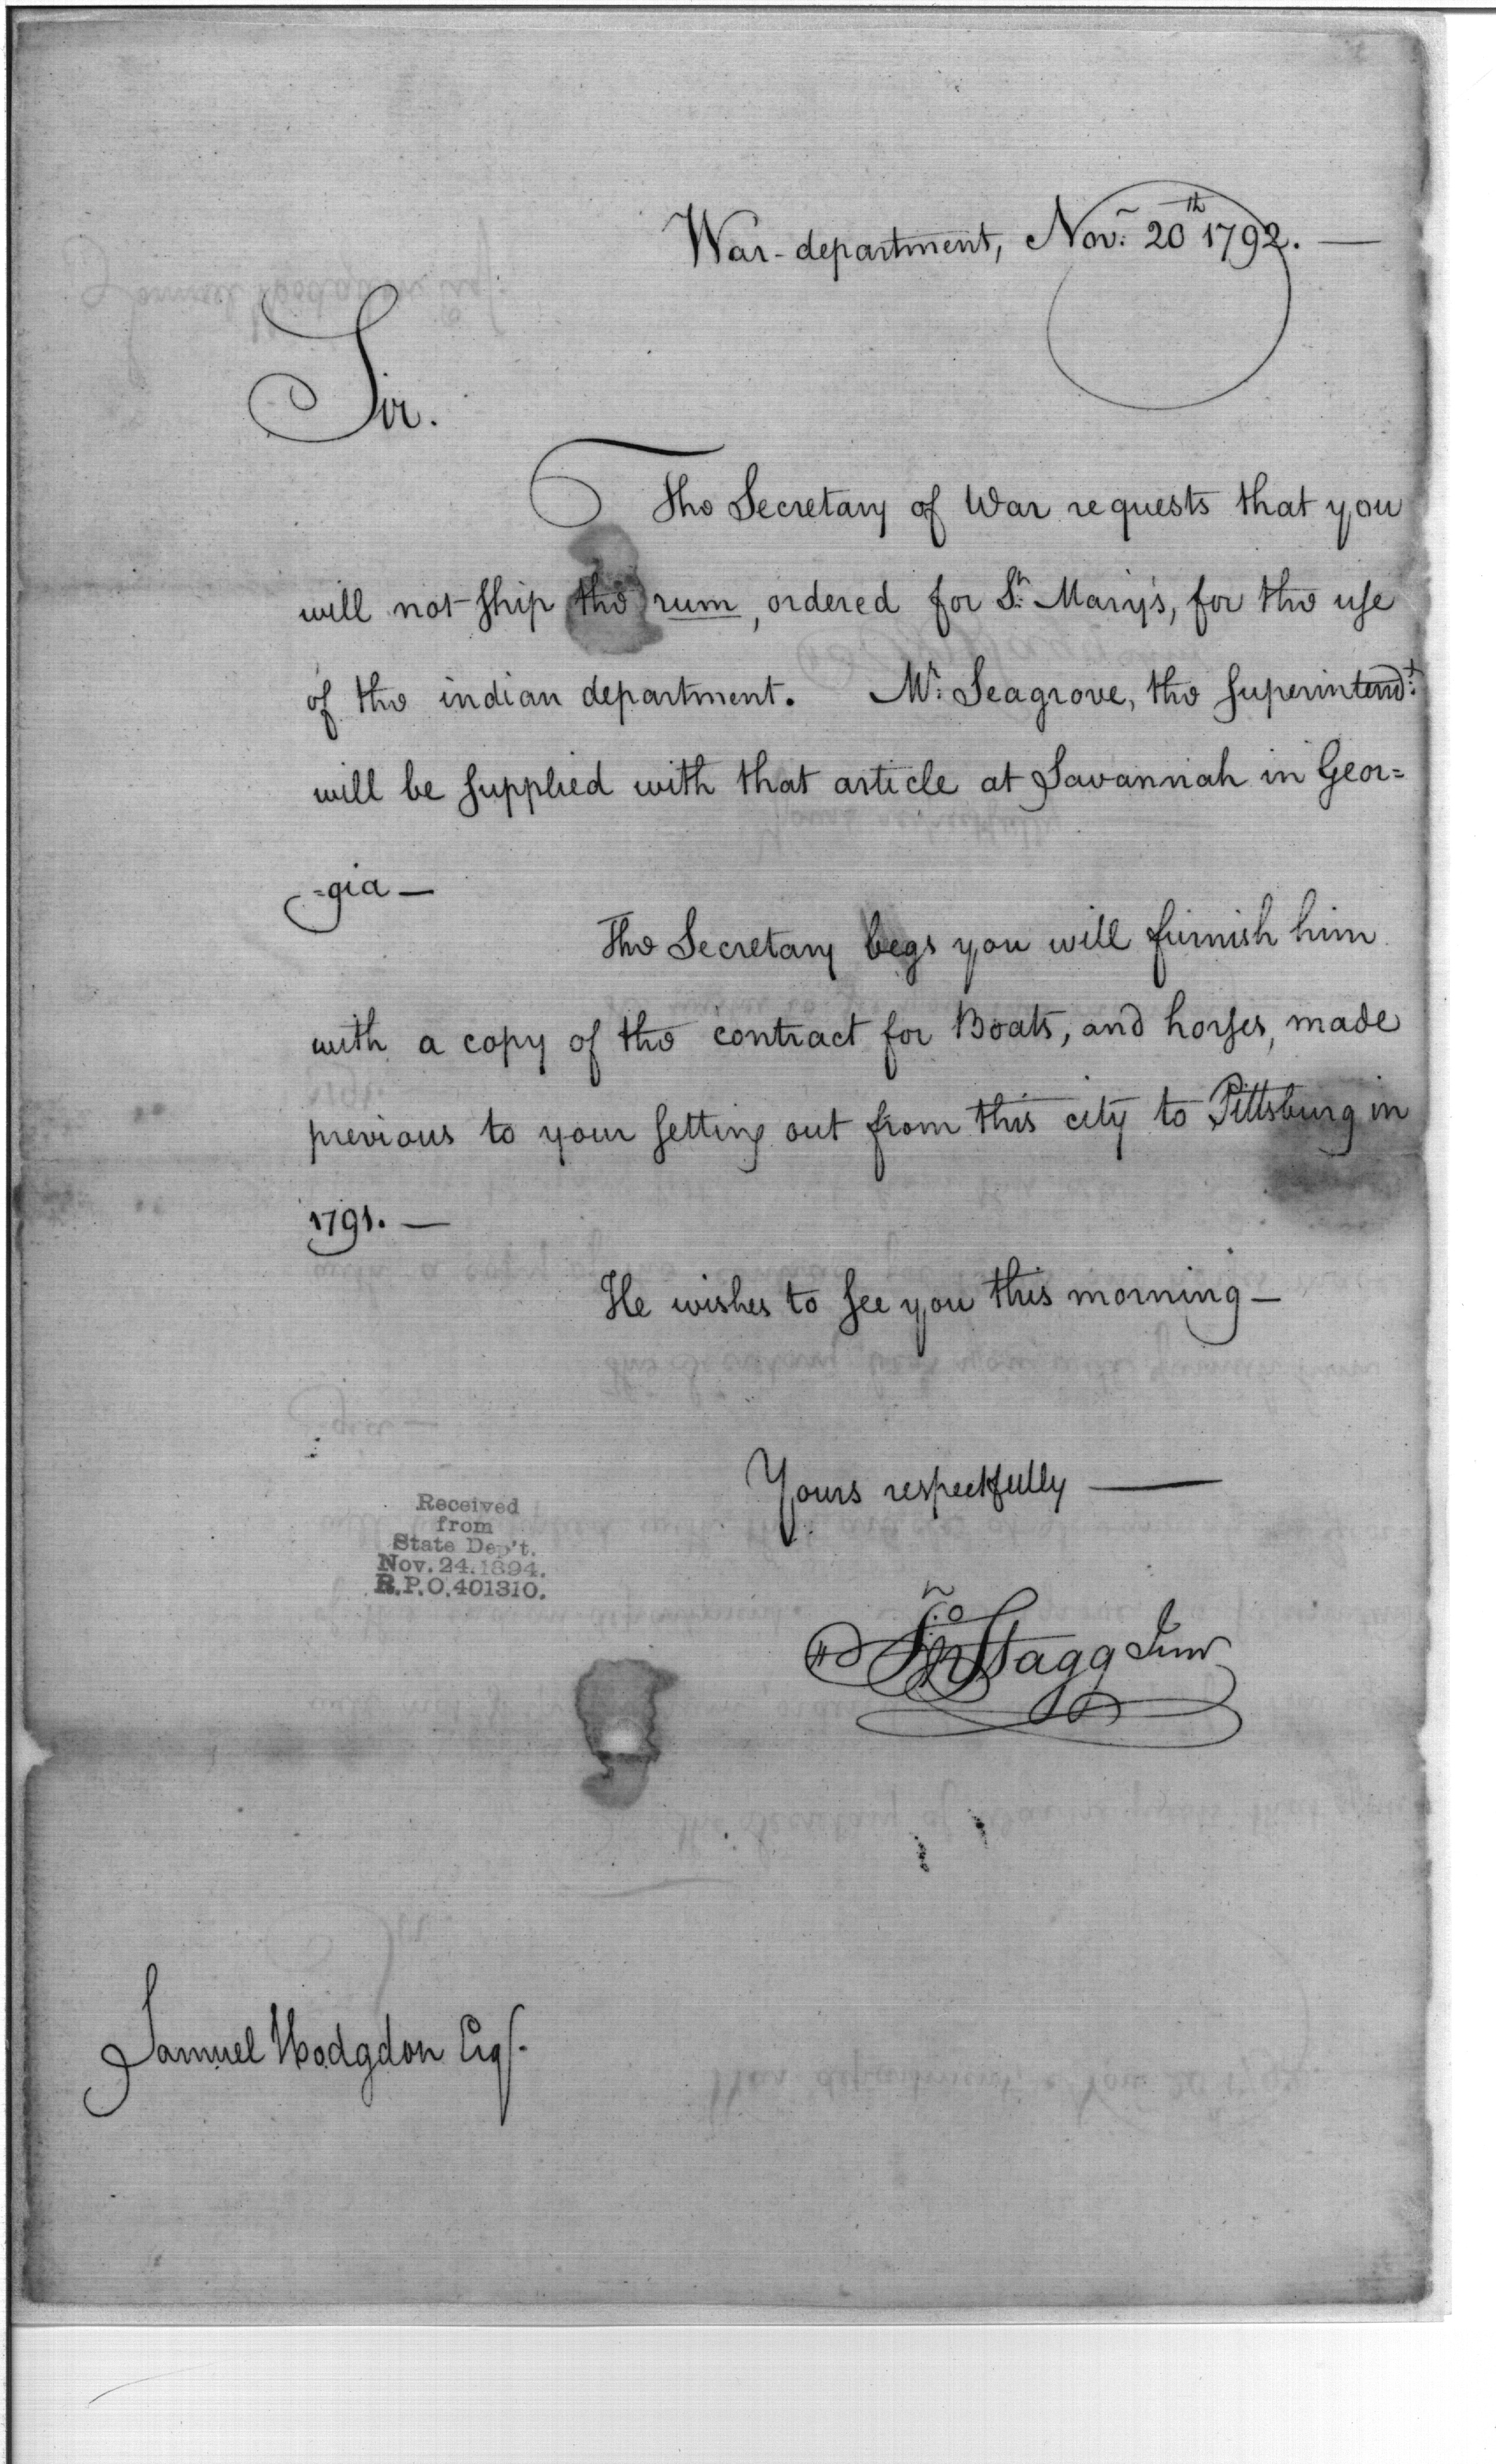 War-department, Nov.r 20th 1792. —
Sir.
The Secretary of War requests that you
will not ship the rum, ordered for St. Mary's, for the use
of the indian department. Mr. Seagrove, the superintendt.
will be supplied with that article at Savannah in Geor=
=gia —
The Secretary begs you will furnish him
with a copy of the contract for Boats, and horses, made
previous to your setting out from this city to Pittsburg in
1791. —
He wishes to see you this morning —
Yours respectfully —
Jno Stagg Junr
Received
from
State Dep't.
Nov. 24. 1894.
R.P.O. 401310.
Samuel Hodgdon Esqr.